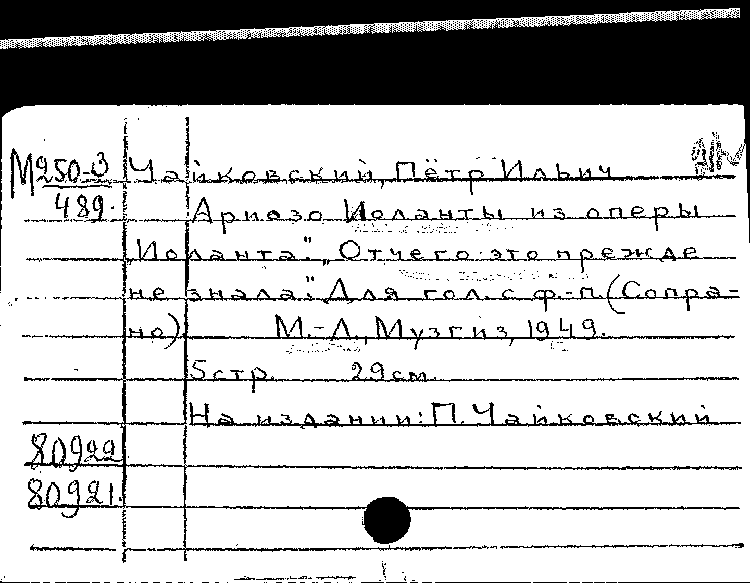 М250-3 Чайковский, Пётр Ильич
489. Ариозо Иоланты из оперы
„Иоланта“. „Отчего это прежде
не знала“. Для гол. с ф.-п. (Сопра-
но) М.-Л., Музгиз, 1949.
5 стр. 29 см.
На издании: П. Чайковский
80922
80921.